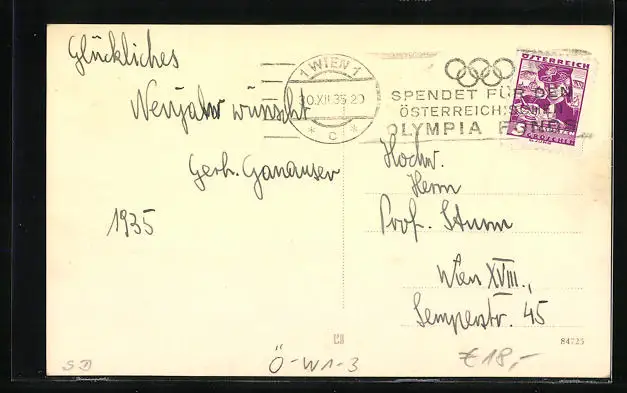 Glückliches
Neujahr wünscht
Gerh. Ganauser
1935
1 WIEN 1
30.XII.35 20
* C *
SPENDET FÜR DEN
ÖSTERREICHISCHEN
OLYMPIA FONDS
ÖSTERREICH
GROSCHEN
Hochw.
Herrn
Prof. Sturm
Wien XVIII.,
Semperstr. 45
84725
Ö-W1-3
€ 18,-